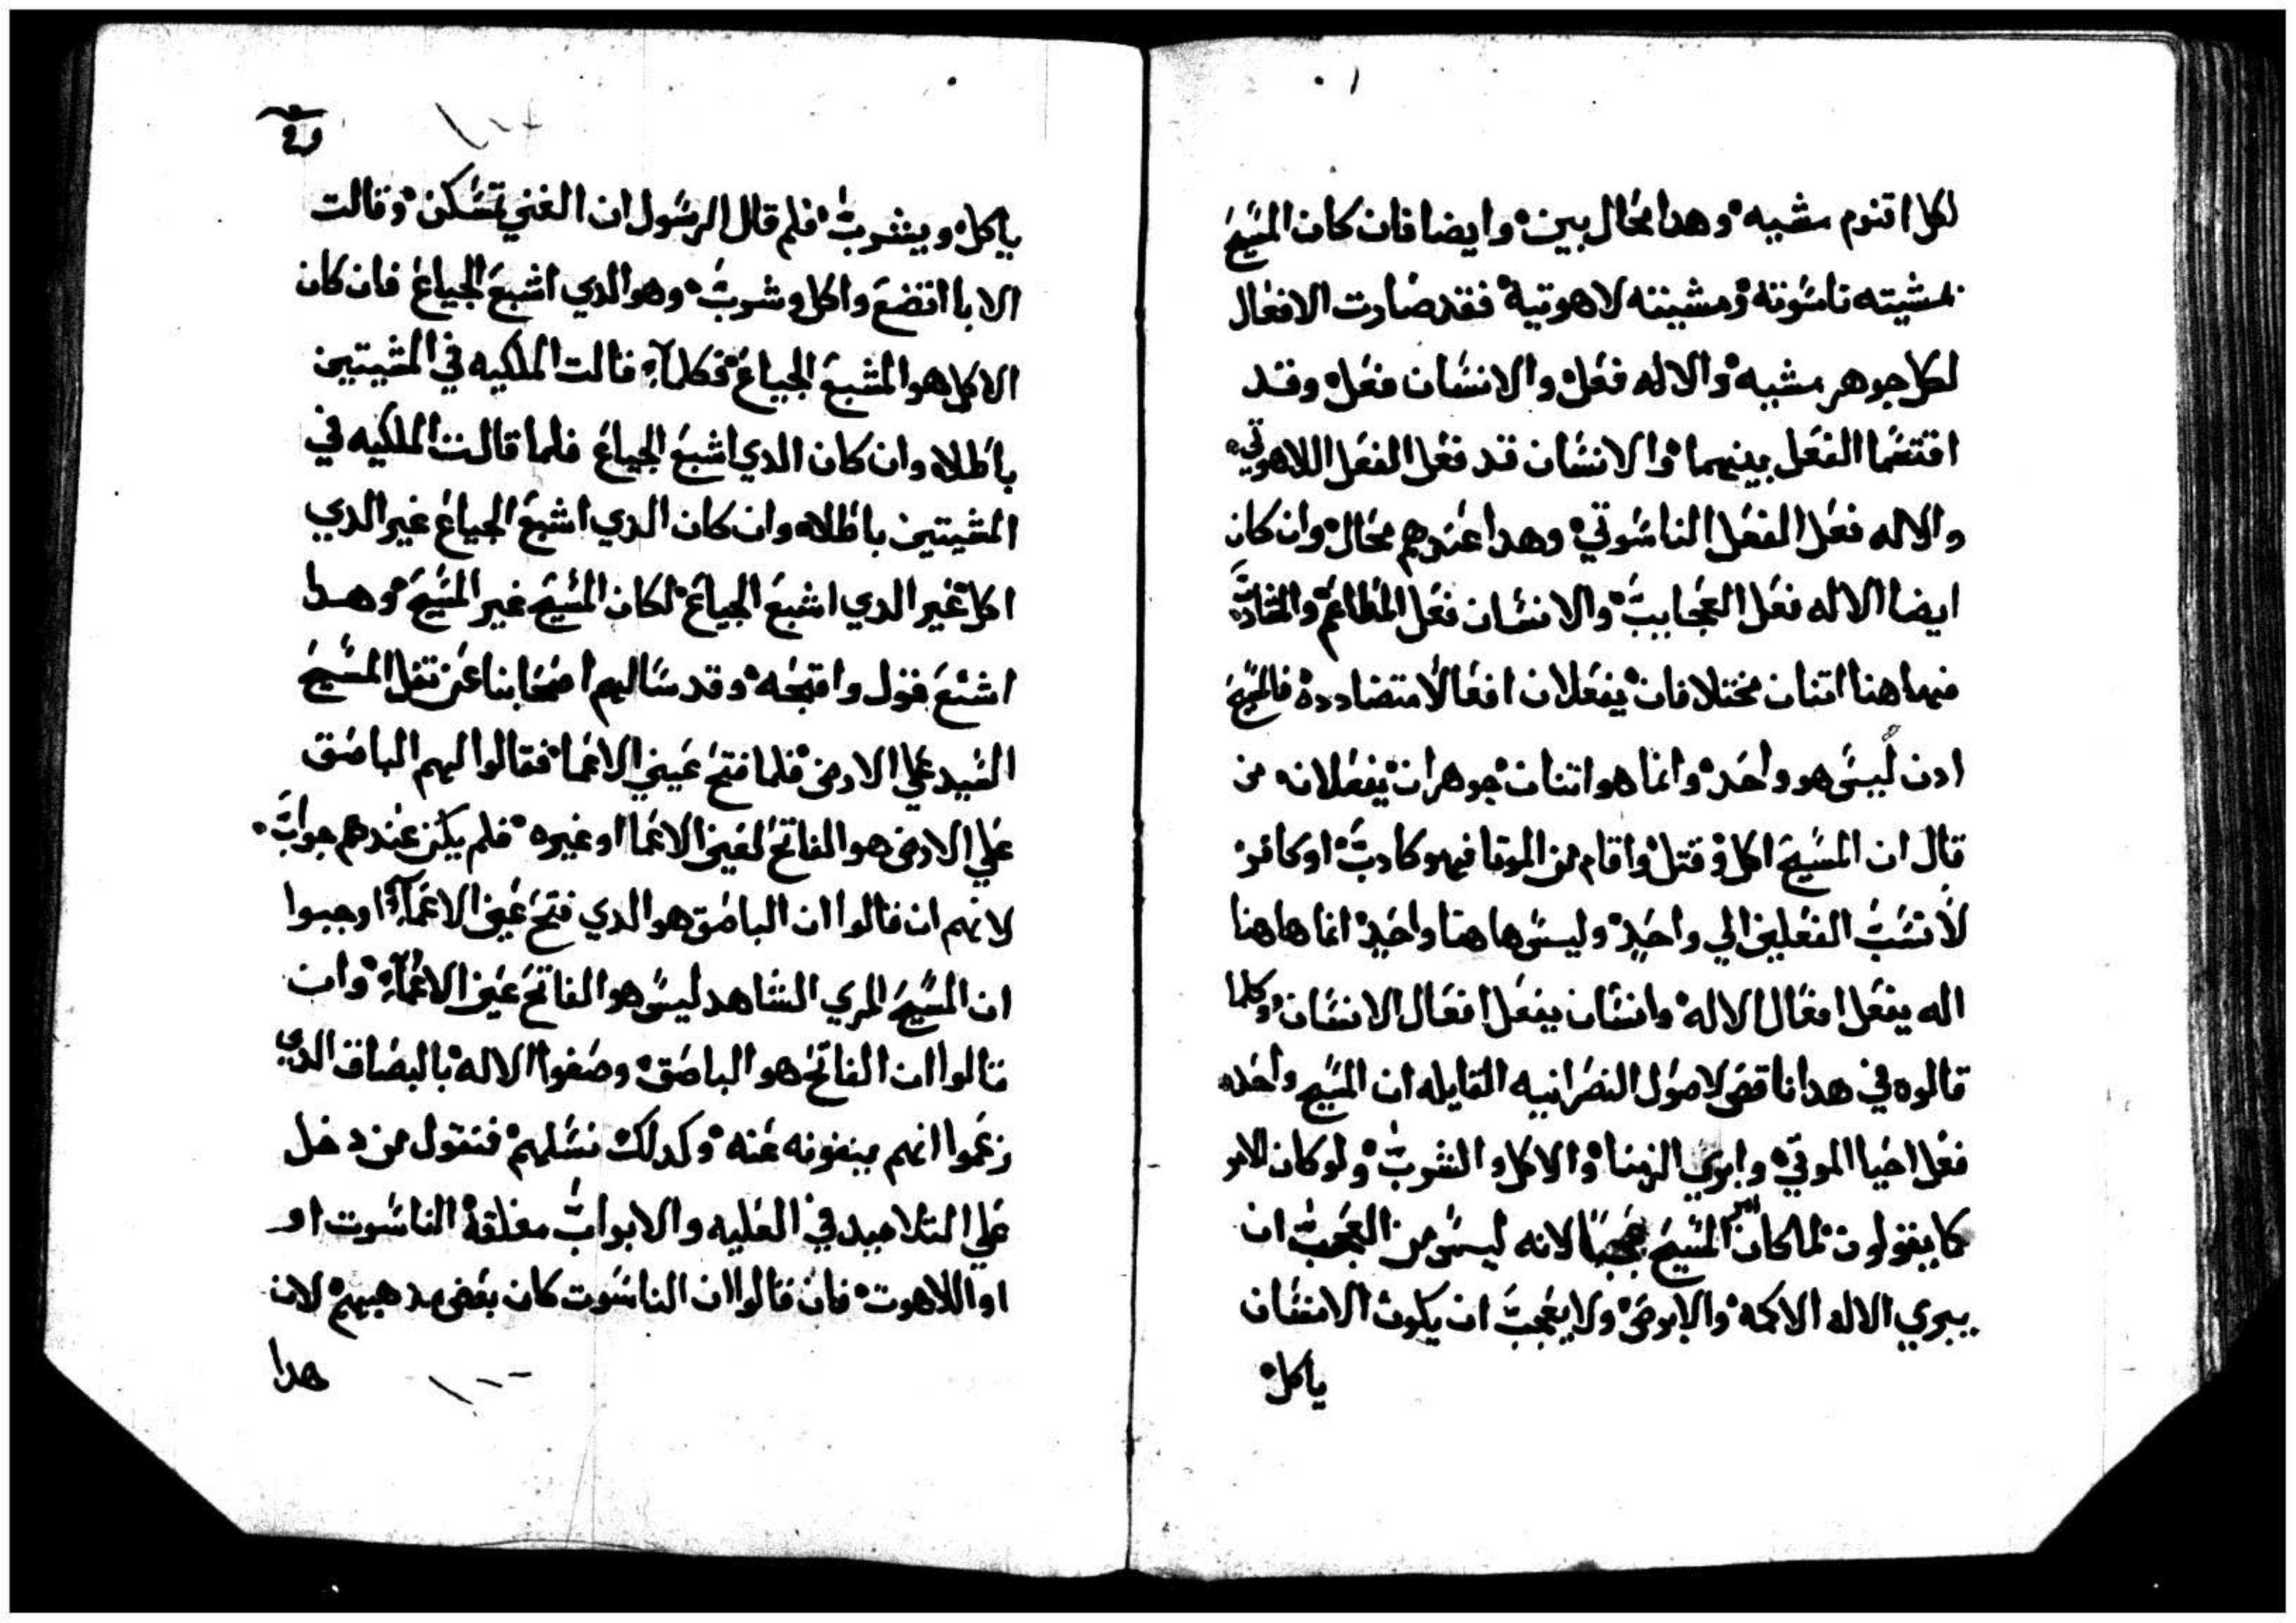 لكل اقنوم مشيه وهدا محال بين وايضا فان كان المسيح
بمشيته ناسوته ومشيته لاهوتية فقد صارت الافعال
لكل جوهر مشيه والاله فعل والانسان فعل وقد
اقتسما الفعل بينهما والانسان قد فعل الفعل اللاهوتي
والاله فعل الفعل الناسوتي وهدا عندهم محال وان كان
ايضا الاله فعل العجايب والانسان فعل المطاعم والمشارب
فهاهنا اتنان مختلافان يفعلان افعالا متضادده فالمسيح
ادن ليس هو واحد وانما هو اتنان جوهران يفعلانه من
قال ان المسيح اكل وقتل واقام من الموتا فهو كادب او كافر
لانسب الفعلين الي واحد وليس هاهنا واحد انما هاهنا
اله يفعل افعال الاله وانسان يفعل افعال الانسان وكلما
قالوه في هدا ناقض لاصول النصرانيه القايله ان المسيح واحد
فعل احيا الموتي وابري الزمنا والاكل والشرب ولو كان الامر
كما يقولون لما كان امر المسيح عجبا لانه ليس من العجب ان
يبري الاله الاكمه والابرص ولا يعجب ان يكون الانسان
ياكل
ياكل ويشرب فلم قال الرسول ان الغني تمسكن وقالت
الابا اتضع واكل وشرب وهو الدي اشبع الجياع فان كان
الاكل هو المشبع الجياع فكلما قالت الملكيه في المشيتين
باطلا وان كان الدي اشبع الجياع فلما قالت الملكيه في
المشيتين باطلا وان كان الدي اشبع الجياع غير الدي
اكل غير الدي اشبع الجياع لكان المسيح غير المسيح وهدا
اشنع قول واقبحه وقد سالهم اصحابنا عن تفل المسيح
السيد علي الارض فلما فتح عيني الاعما فقالوا لهم الباصق
علي الارض هو الفاتح لعين الاعما او غيره فلم يكن عندهم جواب
لانهم ان قالوا ان الباصق هو الدي فتح عين الاعما اوجبوا
ان المسيح المري الشاهد ليس هو الفاتح عين الاعما وان
قالوا ان الفاتح هو الباصق وصفوا الاله بالبصاق الدي
زعموا انهم ينفونه عنه وكدلك نسلهم فنقول من دخل
علي التلاميد في العليه والابواب مغلقة الناسوت او
او اللاهوت فان قالوا ان الناسوت كان بغض مدهبهم لان
هدا